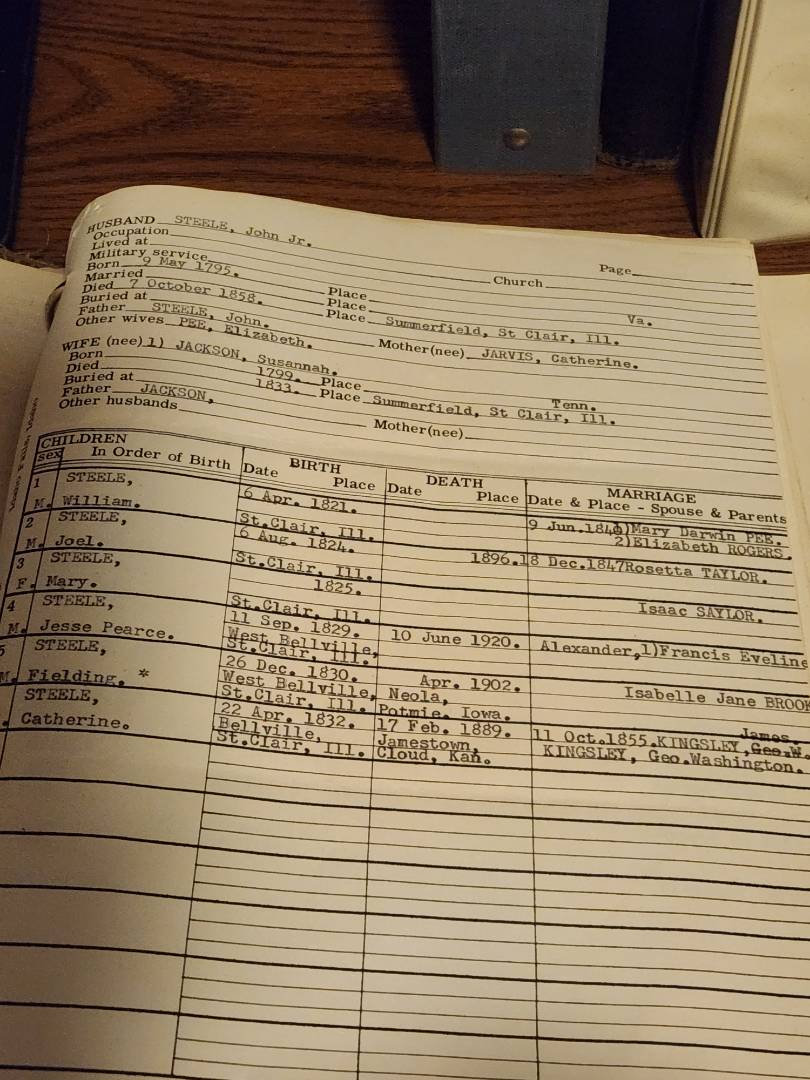 HUSBAND STEELE, John Jr.
Occupation Page
Lived at Church
Military service
Born 9 May 1795. Place Va.
Married Place
Died 7 October 1858. Place Summerfield, St Clair, Ill.
Buried at
Father STEELE, John. Mother(nee) JARVIS, Catherine.
Other wives PEE, Elizabeth.
WIFE (nee) 1) JACKSON, Susannah.
Born 1799. Place Tenn.
Died 1833. Place Summerfield, St Clair, Ill.
Buried at
Father JACKSON, Mother(nee)
Other husbands
CHILDREN BIRTH DEATH MARRIAGE
sex In Order of Birth Date Place Date Place Date & Place - Spouse & Parents
1 STEELE, 6 Apr. 1821. 9 Jun. 1)Mary Darwin PEE.
M. William. St.Clair, Ill. 2)Elizabeth ROGERS.
2 STEELE, 6 Aug. 1824. 1896. 18 Dec.1847 Rosetta TAYLOR.
M. Joel. St.Clair, Ill.
3 STEELE, 1825. Isaac SAYLOR.
F. Mary. St.Clair, Ill.
4 STEELE, 11 Sep. 1829. 10 June 1920. Alexander,1)Francis Eveline
M. Jesse Pearce. West Bellville,
St.Clair, Ill.
5 STEELE, 26 Dec. 1830. Apr. 1902. Isabelle Jane BROOK
M. Fielding. * West Bellville, Neola,
St.Clair, Ill. Potmie. Iowa.
STEELE, 22 Apr. 1832. 17 Feb. 1889. 11 Oct.1855. KINGSLEY, Geo.W. James.
. Catherine. Bellville, Jamestown, KINGSLEY, Geo.Washington.
St.Clair, Ill. Cloud, Kan.